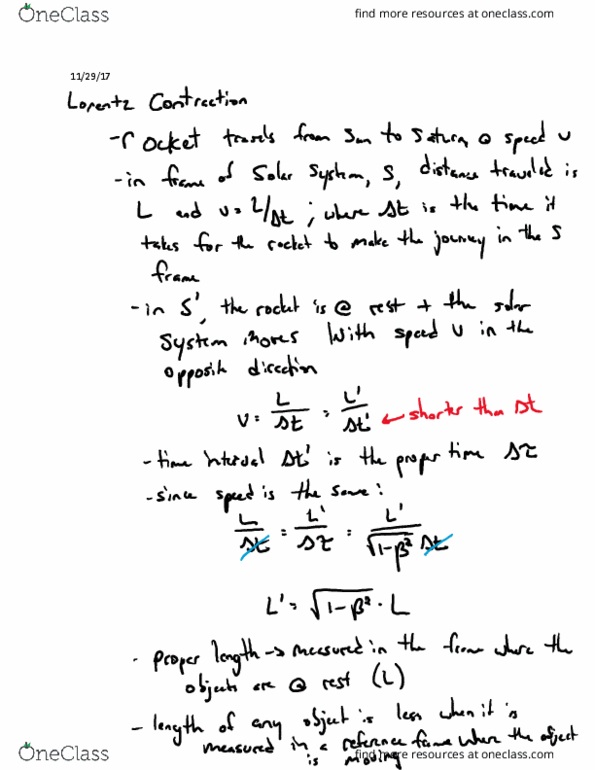 OneClass
find more resources at oneclass.com
11/29/17
Lorentz Contraction
- rocket travels from Sun to Saturn @ speed v
- in frame of Solar System, S, distance traveled is
L and v = L/Δt ; where Δt is the time it
takes for the rocket to make the journey in the S
frame
- in S', the rocket is @ rest + the solar
System moves with speed v in the
opposite direction
v = L/Δt = L'/Δt' ← shorter than Δt
- time interval Δt' is the proper time Δτ
- since speed is the same:
L/Δt = L'/Δτ = L'/√(1-β²) Δt
L' = √(1-β²) · L
- proper length → measured in the frame where the
objects are @ rest (L)
- length of any object is less when it is
measured in a reference frame where the object
is moving
OneClass
find more resources at oneclass.com